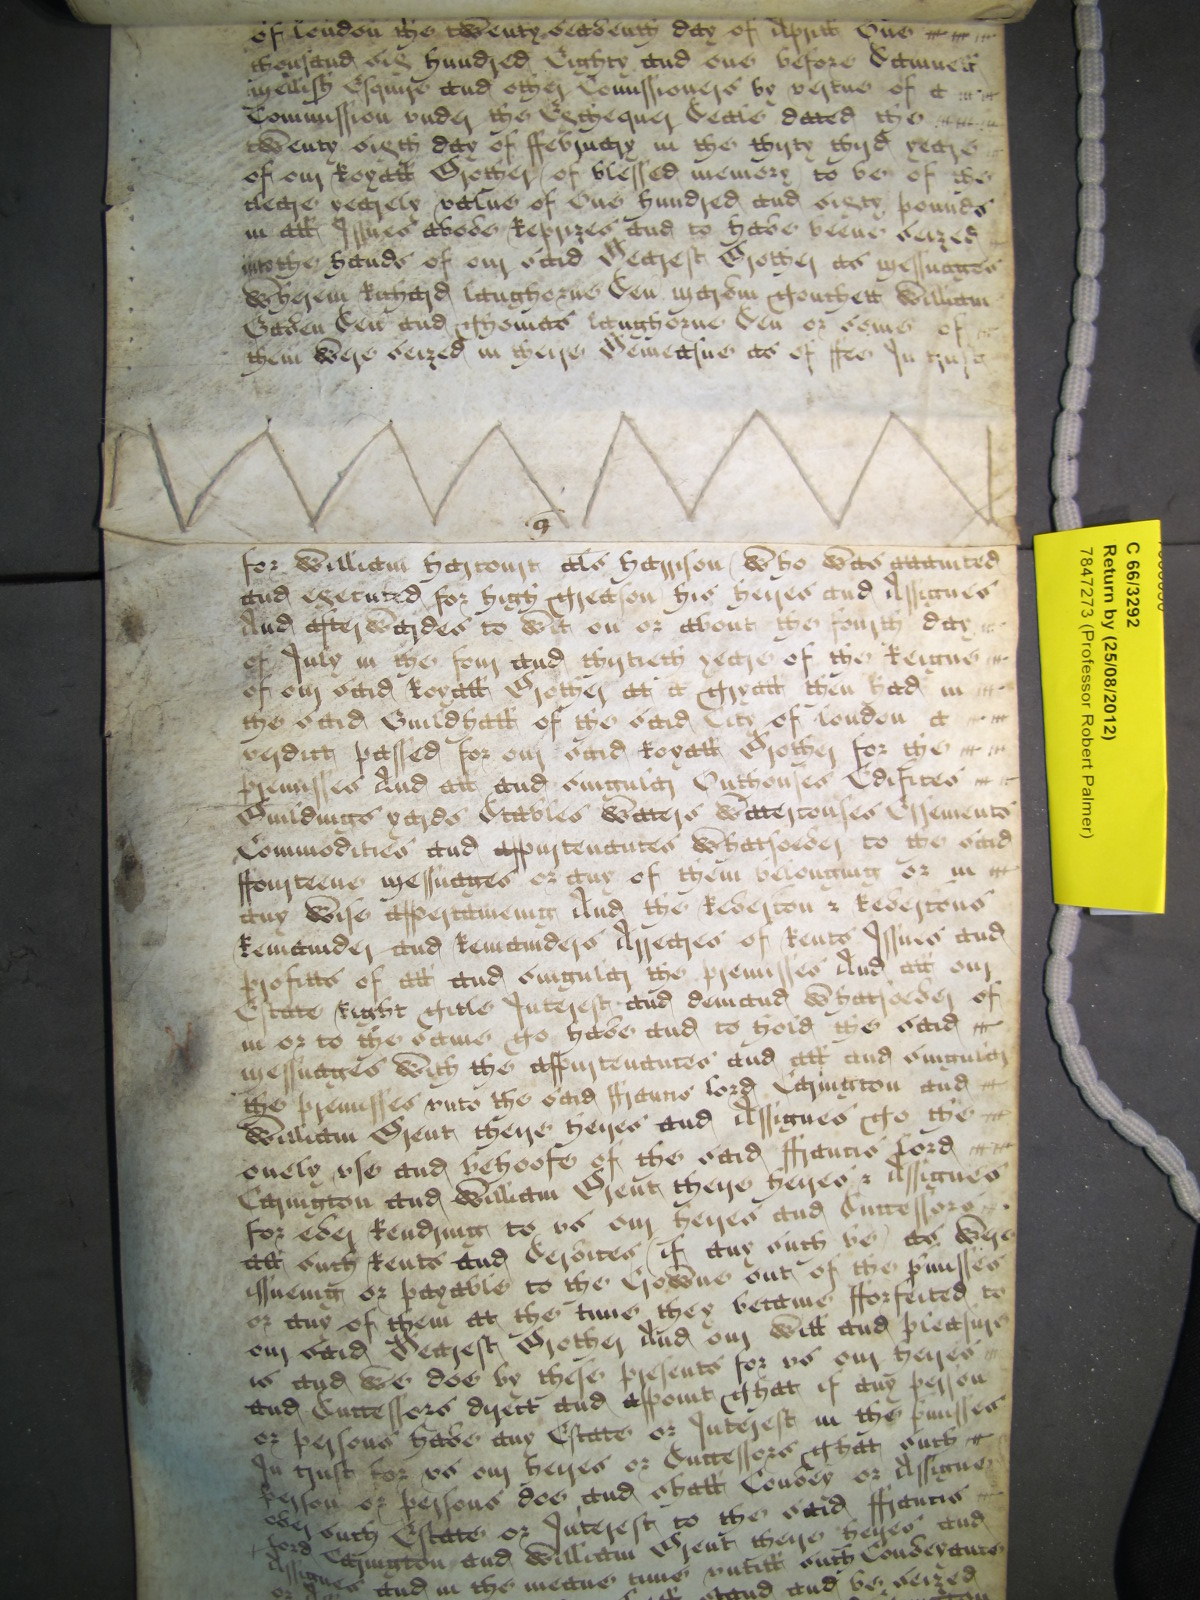 of London the twenty seaventh day of Aprill One
thousand six hundred Eighty and one before Samuell
Mellish Esquire and other Comissioners by vertue of a
Commission under the Exchequer Seale dated the
twenty sixth day of ffebruary in the thirty third yeare
of our Royall Brother of blessed memory to be of the
cleare yearely value of One hundred and sixty pounds
in all Issues above Reprizes and to have beene seized
into the hands of our said Dearest Brother as messuages
Wherein Richard Langhorne Sen William
Sen and Thomas Langhorne Sen or some of
them were seized in theire Demeasne as of ffee In trust
9
for William Harcourt als Harrison Who Was attainted
and executed for high Treason his heires and Assignes
And afterwardes to wit on or about the fourth day
of July in the four and thirtieth yeare of the Reigne
of our said Royall Brother at a Tryall then had in
the said Guildhall of the said City of London a
verdict passed for our said Royall Brother for the
premisses And all and singular Outhouses Edifices
Buildings yards Stables Waters Watercourses Easements
Commodities and appurtenances Whatsoever to the said
ffourteene messuages or any of them belonging or in
any Wise appertaineing And the Revercon & Revercons
Remainder and Remainders Arreares of Rents Issues and
profitts of all and singular the premisses And all our
Estate Right Title Interest and demand Whatsoever of
in or to the same To have and to hold the said
messuages With the appurtenances and all and singular
the premisses unto the said ffrancis Lord Carington and
William Brent theire heires and Assignes To the
onely use and behoofe of the said ffrancis Lord
Carington and William Brent theire heires & Assignes
for ever Rendring to us our heires and Successors
all such Rents and Services if any such be as Were
issueing or payable to the Crowne out of the pmisses
or any of them at the time they became fforfeited to
our said Dearest Brother And our Will and pleasure
is and We doe by these presents for us our heires
and Successors direct and appoint That if any person
or persons have any Estate or Interest in the pmisses
In trust for us our heires or Successors That such
Person or persons doe and shall Convey or Assigne
over such Estate or Interest to the said ffrancis
Lord Carington and William Brent theire heires and
Assignes and in the meane time untill such Conveyance
stand and be seized